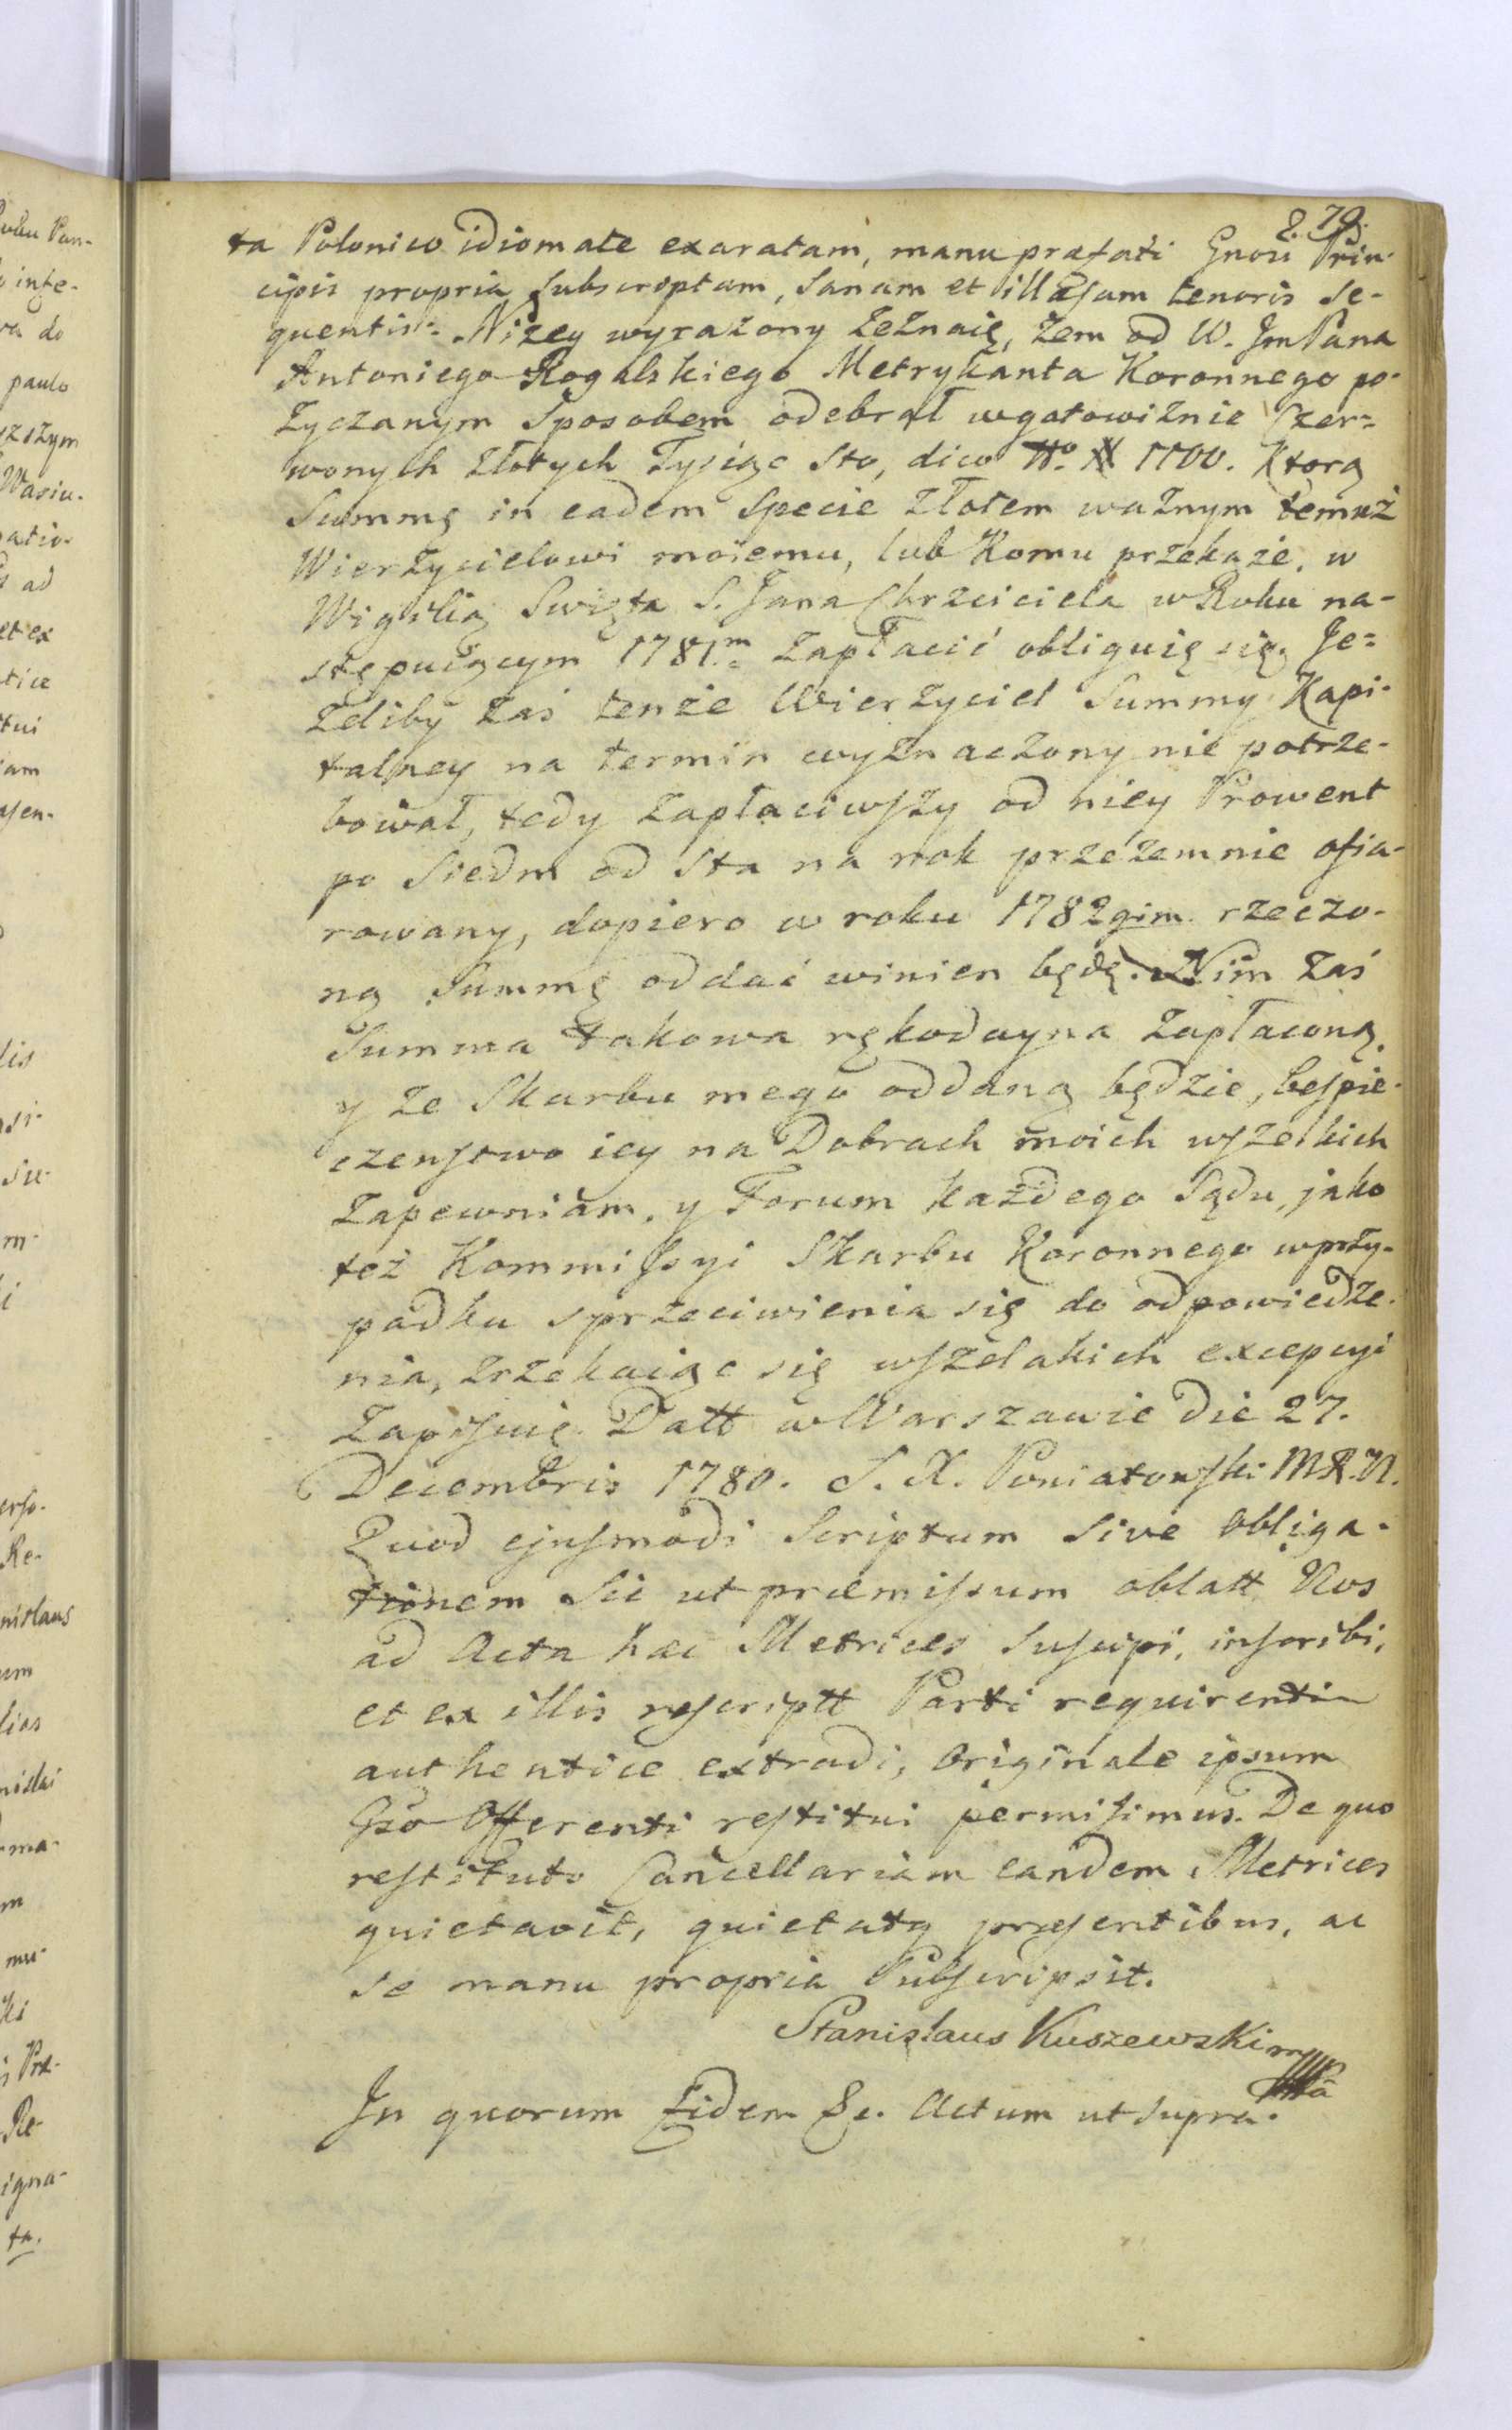 879.
ta Polonico idiomate exaratam, manu præfati Gnosi Prin-
cipis propria subscriptam, sanam et illæsam tenoris se-
quentis: Niżey wyrażony zeznaię, żem od W. Jm Pana
Antoniego Rogalskiego Metrykanta Koronnego po-
życzanym sposobem odebrał w gotowiźnie Czer-
wonych złotych Tysiąc sto, dico No. # 1100. Ktorą
Summę in eadem specie złotem ważnym temuż
Wierzycielowi moiemu, lub komu przekaże, w
Wigilią Swięta S. Jana Chrzciciela w Roku na-
stępuiącym 1781.m zapłacić obliguię się. Je-
żeliby zaś tenże Wierzyciel Summy Kapi-
talney na termin wyznaczony nie potrze-
bował, tedy zapłaciwszy od niey Prowent
po siedm od sta na rok przezemnie ofia-
rowany, dopiero w roku 1782gim. rzeczo-
ną summę oddać winien będę. Nim zaś
Summa takowa rękodayna zapłaconą
y ze Skarbu mego oddaną będzie, bespie-
czenstwo iey na Dobrach moich wszelkich
zapewniam, y Forum każdego Sądu, jako
też Kommissyi Skarbu Koronnego w przy-
padku sprzeciwienia się do odpowiedze-
nia, zrzekaiąc się wszelakich excepcyi
zapisuię. Datt w Warszawie die 27.
Decembris 1780. S. X. Poniatowski M.R.N.
Quod ejusmodi Scriptum sive obliga-
tionem sic ut præmissum oblatt Nos
ad Acta hac Metrices suscipi, inscribi,
et ex illis rescriptt Parti requirenti
authentice extradi, Originale ipsum
Gso Offerenti restitui permisimus. De quo
restituto Cancellariam eandem Metrices
quietavit, quietatq præsentibus, ac
se manu propria subscripsit.
Stanislaus Kuszewski mppa
In quorum fidem &c. Actum ut supra.